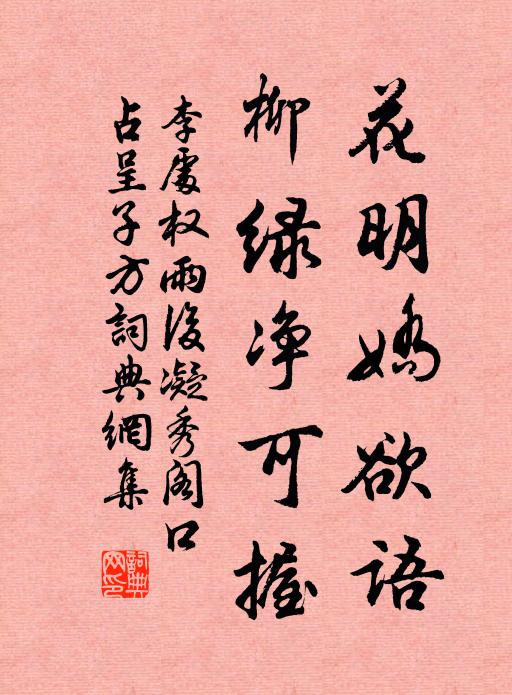 花明嬌欲語
柳绿净可握
李處权雨後凝秀阁口
占呈子方詞典網集
詞典网印